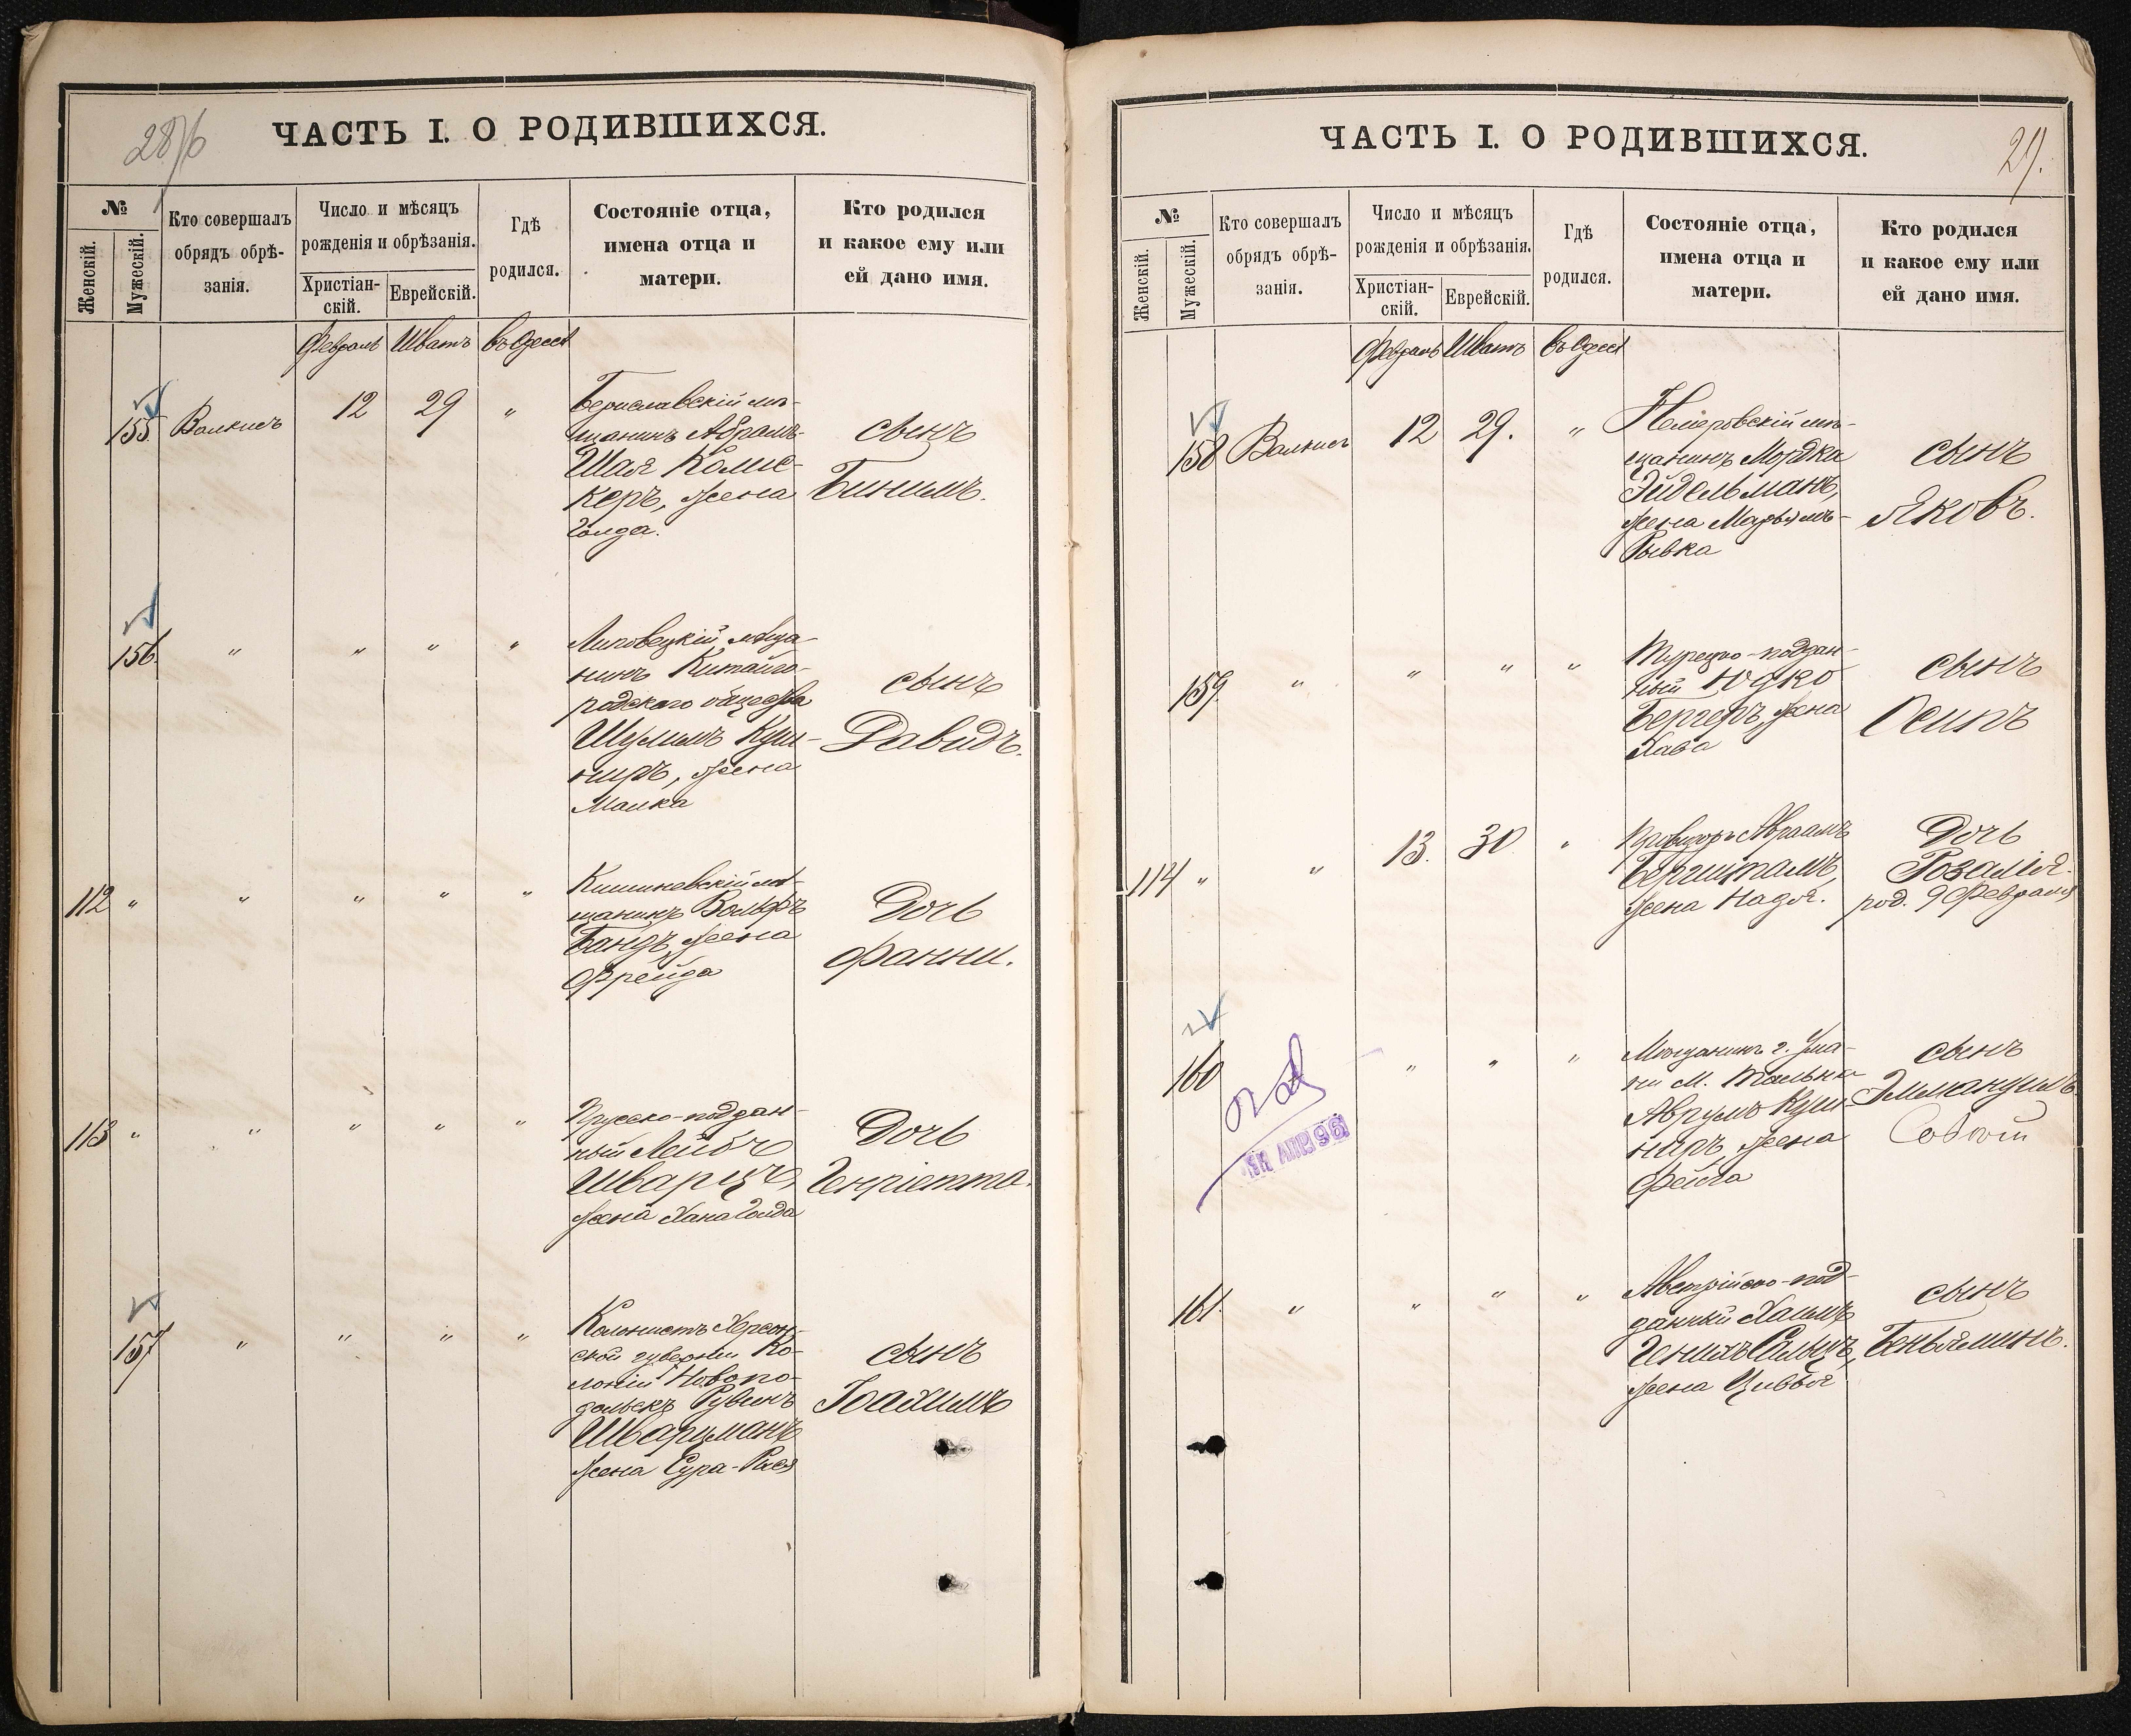 28/б
ЧАСТЬ I. О РОДИВШИХСЯ.
№
Женскій.
Мужескій.
Кто совершалъ
обрядъ обрѣ-
занія.
Число и мѣсяцъ
рожденія и обрѣзанія.
Христіан-
скій.
Еврейскій.
Гдѣ
родился.
Состояніе отца,
имена отца и
матери.
Кто родился
и какое ему или
ей дано имя.
Февраль Шватъ въ Одессѣ
155. Валкисъ 12 29 „
Бериславскій мѣ-
щанинъ Абрамъ-
Шая Колис-
керъ, жена
Голда.
сынъ
Бинимъ.
156. „ „ „ „
Липовецкій мѣща-
нинъ Китайго-
родскаго общества
Шулимъ Куш-
ниръ, жена
Малка
сынъ
Давидъ.
112 „ „ „ „ „
Кишиневскій мѣ-
щанинъ Вольфъ
Бандъ, жена
Фрейда
Дочь
Фанни.
113 „ „ „ „ „
Прусско-поддан-
ный Лейбъ
Шварцъ,
жена Хана Голда
Дочь
Генріетта.
157 „ „ „ „
Колонистъ Херсон-
ской губерніи Ко-
лоніи Новопо-
дольскъ Рувинъ
Шварцманъ
жена Сура-Рися
сынъ
Іоахимъ
ЧАСТЬ I. О РОДИВШИХСЯ.
29.
№
Женскій.
Мужескій.
Кто совершалъ
обрядъ обрѣ-
занія.
Число и мѣсяцъ
рожденія и обрѣзанія.
Христіан-
скій.
Еврейскій.
Гдѣ
родился.
Состояніе отца,
имена отца и
матери.
Кто родился
и какое ему или
ей дано имя.
Февраль Шватъ въ Одессѣ
158 Валкисъ 12 29. „
Немировскій мѣ-
щанинъ Мордка
Эйдельманъ,
жена Марьямъ-
Рывка
сынъ
Яковъ.
159. „ „ „ „
Турецко-поддан-
ный Юдко
Бергеръ, жена
Хава
сынъ
Осипъ
114 „ „ 13. 30 „
Провизоръ Авраамъ
Бергшталъ,
жена Надя.
Дочь
Розалія.
род. 9 Февраля
160 „ „ „
Мѣщанинъ г. Ума-
ни М. Тальнаго
Аврумъ Куш-
ниръ, жена
Фейга
сынъ
Эммануилъ.
161. „ „ „ „
Австрійско-под-
данный Хаимъ
Генихъ Сальцъ,
жена Цивья
сынъ
Беньяминъ.